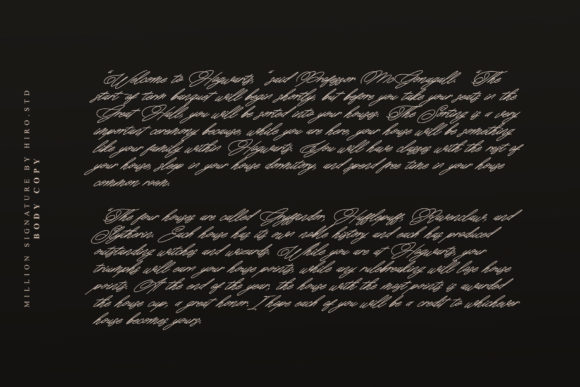 MILLION SIGNATURE BY HIRO.STD
BODY COPY
"Welcome to Hogwarts," said Professor McGonagall. "The
start of term banquet will begin shortly, but before you take your seats in the
Great Hall, you will be sorted into your houses. The Sorting is a very
important ceremony because, while you are here, your house will be something
like your family within Hogwarts. You will have classes with the rest of
your house, sleep in your house dormitory, and spend free time in your house
common room.
"The four houses are called Gryffindor, Hufflepuff, Ravenclaw, and
Slytherin. Each house has its own noble history and each has produced
outstanding witches and wizards. While you are at Hogwarts, your
triumphs will earn your house points, while any rulebreaking will lose house
points. At the end of the year, the house with the most points is awarded
the house cup, a great honor. I hope each of you will be a credit to whichever
house becomes yours.